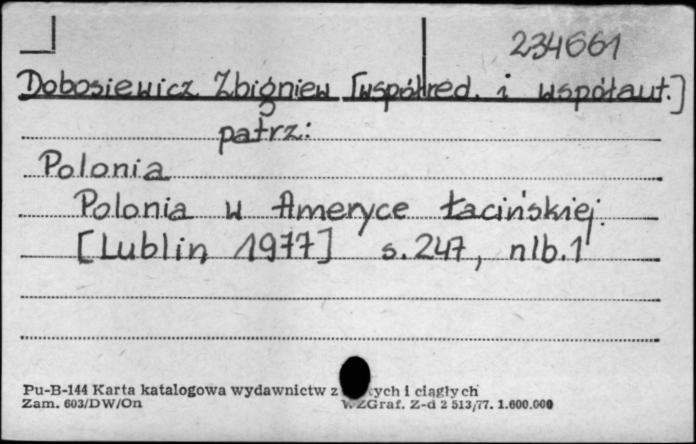 234661
Dobosiewicz Zbigniew [współred. i współaut.]
patrz:
Polonia
Polonia w Ameryce Łacińskiej.
[Lublin, 1977] s. 247, nlb. 1
Pu-B-144 Karta katalogowa wydawnictw z i ciągłych
Zam. 603/DW/On WZGraf. Z-d 2 513/77. 1.600.000